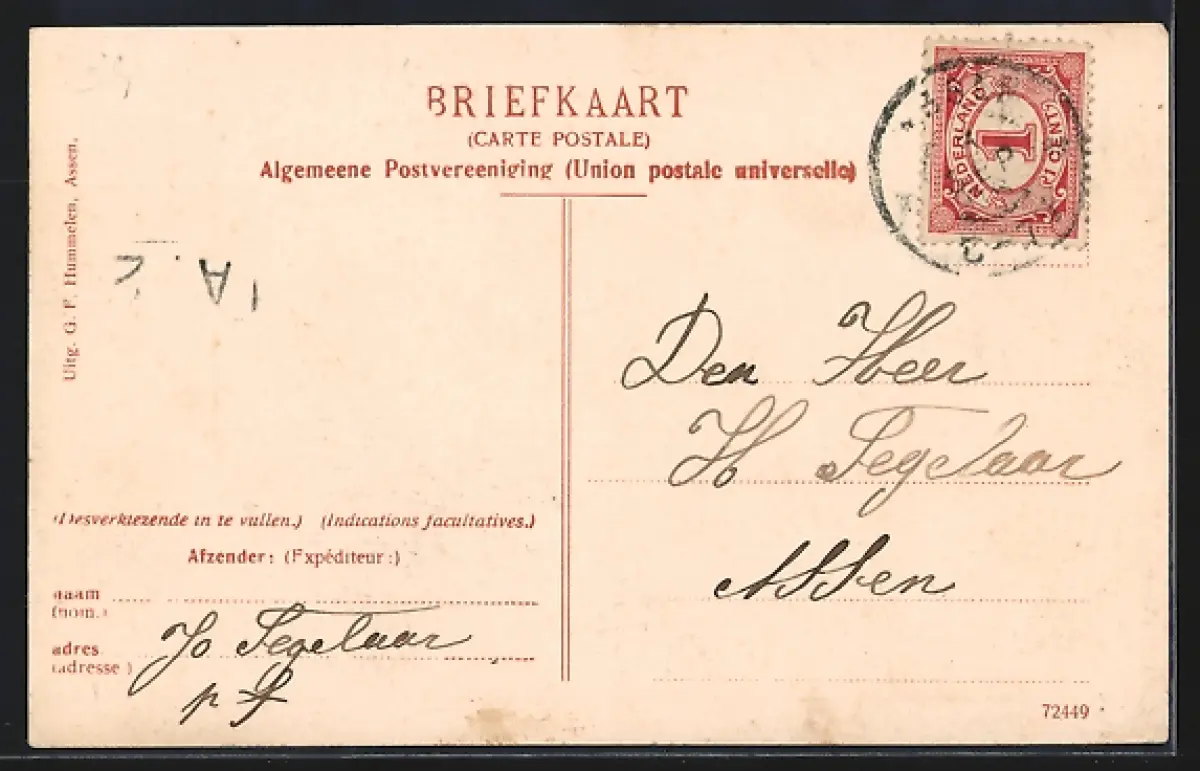 BRIEFKAART
(CARTE POSTALE)
Algemeene Postvereeniging (Union postale universelle)
NEDERLAND 1 CENT
1
Uitg. G. F. Hummelen, Assen.
A.
Den Heer
H Tegelaar
Assen
(Desverkiezende in te vullen.) (Indications facultatives.)
Afzender: (Expéditeur:)
naam
(nom.)
Jo Tegelaar
adres
(adresse)
72449